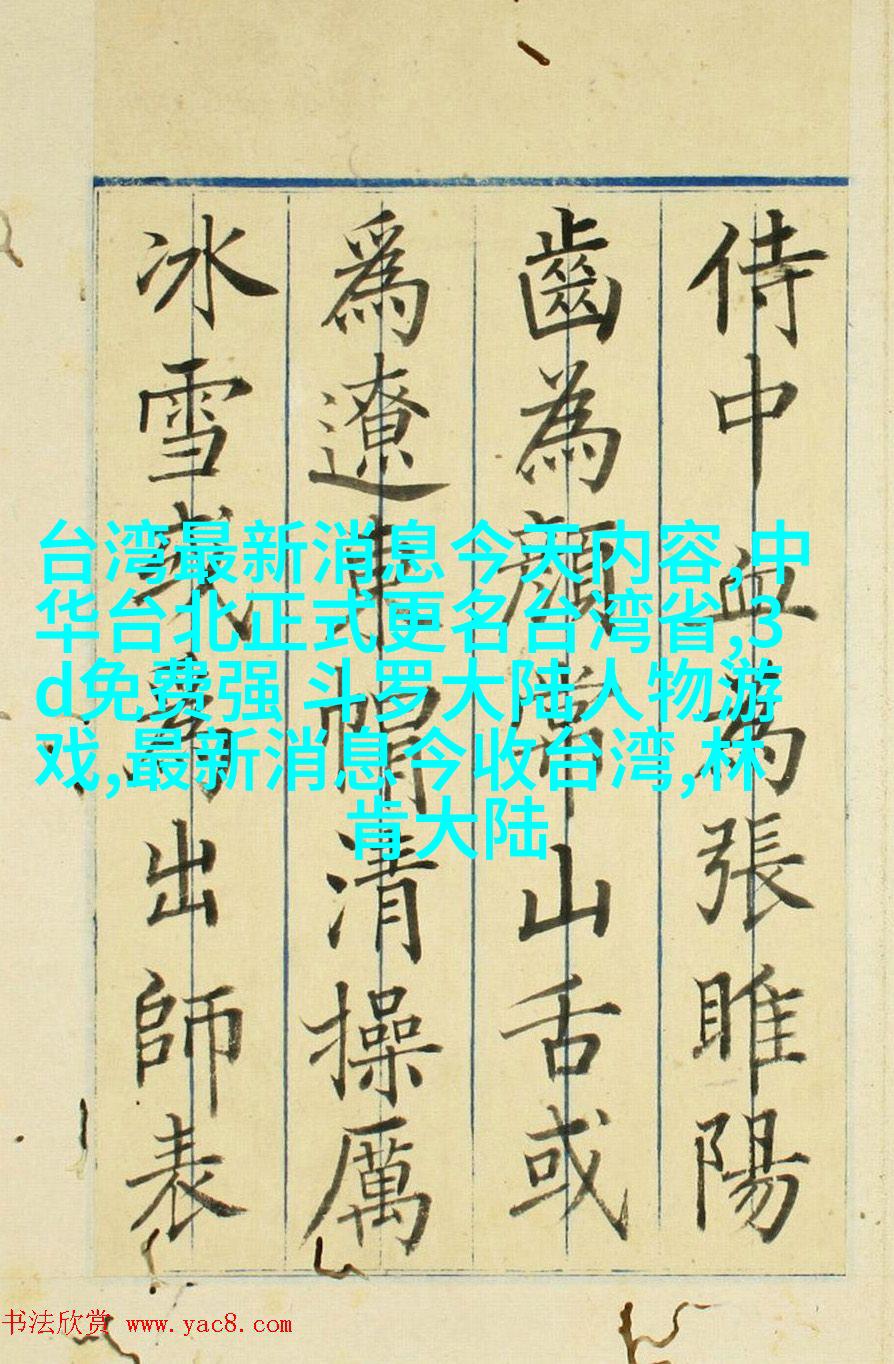 侍中血為張睢陽
齒為顏常山舌或
爲遼東帽清操厲
冰雪或為出師表
台湾最新消息今天内容,中
华台北正式更名台湾省,3
d免费强 斗罗大陆人物游
戏,最新消息今收台湾,林
肯大陆
书法欣赏 www.yac8.com